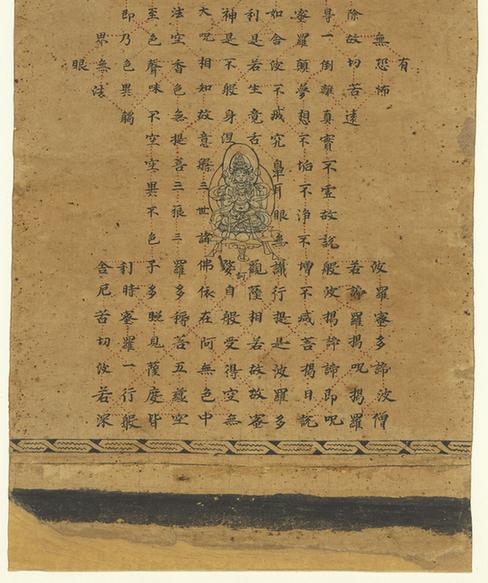 有
無恐怖波羅蜜多諦波僧
除故切苦遠若諦羅揭呪揭羅
一倒離真實不虛故說般波揭諦諦即呪
蜜羅顛夢想不垢不淨不增不減菩揭曰說
如舍波不滅究眼無識行提是波羅多
利是若生竟舌觀薩相若故故蜜
神是不般身涅自般受得空無
大呪相如故意槃三世諸佛依在阿無色中
法空香色提菩三三羅多苦五蘊空
至色聲味不空空異不色子多照見薩度皆
即乃色異觸利時蜜羅一行般
界無法舍厄苦切波若深
眼